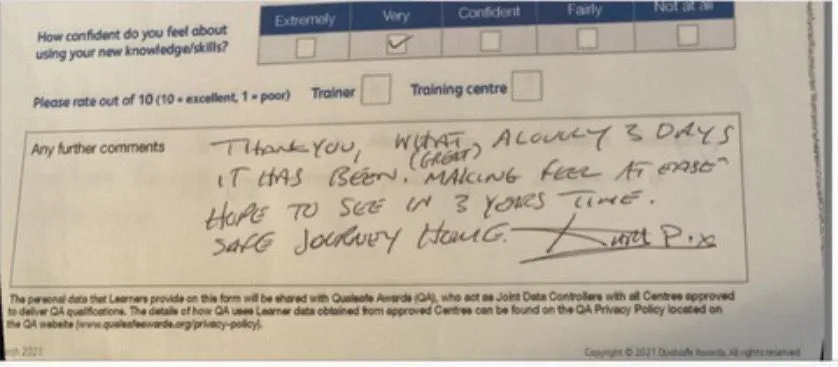 Extremely Very Confident Fairly Not at all
How confident do you feel about
using your new knowledge/skills?
Please rate out of 10 (10 = excellent, 1 = poor) Trainer Training centre
Any further comments
THANKYOU, WHAT A LOVELY 3 DAYS
(GREAT)
IT HAS BEEN. MAKING FEEL AT EASE
HOPE TO SEE IN 3 YEARS TIME.
SAFE JOURNEY HOME. P.x
The personal data that Learners provide on this form will be shared with Qualsafe Awards (QA), who act as Joint Data Controllers with all Centres approved
to deliver QA qualifications. The details of how QA uses Learner data obtained from approved Centres can be found on the QA Privacy Policy located on
the QA website (www.qualsafeawards.org/privacy-policy).
2021
Copyright © 2021 Qualsafe Awards. All rights reserved